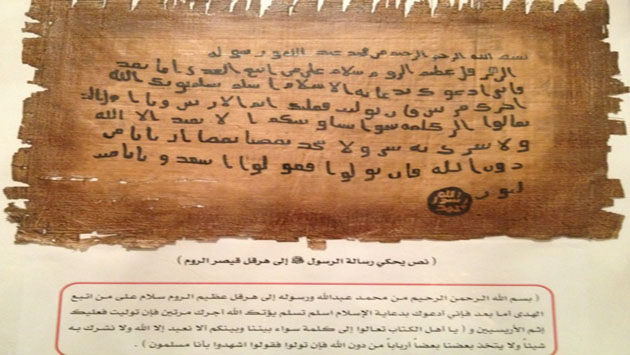 بسم الله الرحمن الرحيم من محمد عبد الله و رسوله
الى هرقل عظيم الروم سلام على من اتبع الهدى اما بعد
فاني ادعوك بدعاية الاسلام اسلم تسلم يوتك الله
اجرك مرتين فان توليت فعليك اثم الاريسين ويا اهل الكتاب
تعالوا الى كلمة سوا بيننا وبينكم الا نعبد الا الله
ولا نشرك به شيا ولا يتخذ بعضنا بعضا اربابا من
دون الله فان تولوا فقولوا اشهدوا بانا مسلمون
الله
رسول
محمد
( نص يحكي رسالة الرسول ﷺ إلى هرقل قيصر الروم )
( بسم الله الرحمن الرحيم من محمد عبدالله ورسوله إلى هرقل عظيم الروم سلام على من اتبع
الهدى أما بعد فإني أدعوك بدعاية الإسلام اسلم تسلم يؤتك الله أجرك مرتين فإن توليت فعليك
إثم الأريسيين و ( يا أهل الكتاب تعالوا إلى كلمة سواء بيننا وبينكم ألا نعبد إلا الله ولا نشرك به
شيئاً ولا يتخذ بعضنا بعضاً أرباباً من دون الله فإن تولوا فقولوا اشهدوا بأنا مسلمون ) .